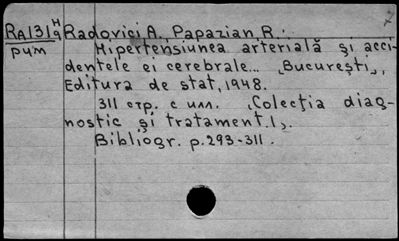 RA131 H9 Radovici A., Papazian R.
рум Hipertensiunea arterială şi acci-
dentele ei cerebrale... „Bucureşti„,
Editura de stat, 1948.
311 стр. с илл. „Colecţia diag-
nostic şi tratament.1„.
Bibliogr. p.293-311.